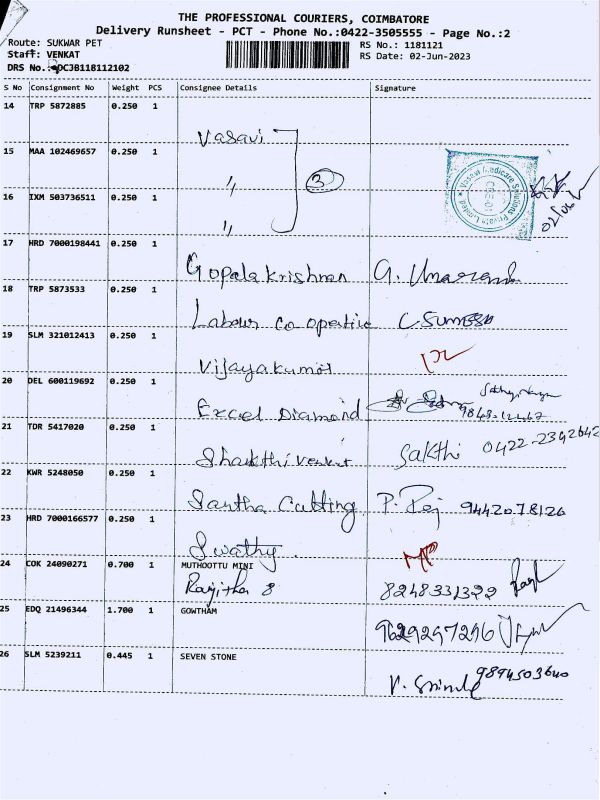 THE PROFESSIONAL COURIERS, COIMBATORE
Delivery Runsheet - PCT - Phone No.:0422-3505555 - Page No.:2
Route: SUKWAR PET RS No.: 1181121
Staff: VENKAT RS Date: 02-Jun-2023
DRS No.: DCJB118112102
S No Consignment No Weight PCS Consignee Details Signature
14 TRP 5872885 0.250 1
Vasavi
15 MAA 102469657 0.250 1
" 3
Vasavi Medicare Solutions Private Limited
16 IXM 503736511 0.250 1
"
17 HRD 7000198441 0.250 1
Gopalakrishnan G.
18 TRP 5873533 0.250 1
Labour co opertive
19 SLM 321012413 0.250 1
Vijayakumar
20 DEL 600119692 0.250 1
Excel Diamond
21 TDR 5417020 0.250 1
Shakthi Venkat Sakthi 0422-2342642
22 KWR 5248050 0.250 1
Santha Cutting P. Raj 9442078126
23 HRD 7000166577 0.250 1
Swathy.
24 COK 24090271 0.700 1 MUTHOOTTU MINI
Ranjitha S 8248331322
25 EDQ 21496344 1.700 1 GOWTHAM
9629297296
26 SLM 5239211 0.445 1 SEVEN STONE
9894503640